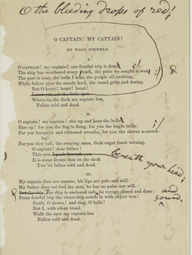 O the bleeding drops of red!
O CAPTAIN! MY CAPTAIN!
BY WALT WHITMAN.
I
O CAPTAIN! my captain! our fearful trip is done;
The ship has weathered every rack, the prize we sought is won;
The port is near, the bells I hear, the people all exulting,
While follow eyes the steady keel, the vessel grim and daring.
But O heart! heart! heart!
Where on the deck my captain lies,
Fallen cold and dead.
II
O captain! my captain! rise up and hear the bells;
Rise up! for you the flag is flung, for you the bugle trills;
For you bouquets and ribboned wreaths, for you the shores
For you they call, the swaying mass, their eager faces turning.
O captain! dear father!
This arm
beneath your head;
It is some dream that on the deck
You've fallen cold and dead.
III
My captain does not answer, his lips are pale and still;
My father does not feel my arm, he has no pulse nor will.
The ship is anchored safe, its voyage closed and done;
and sound
From fearful trip the victor ship comes in with object won!
Exult, O shores! and ring, O bells!
But I, with silent tread,
Walk the spot my captain lies
Fallen cold and dead.